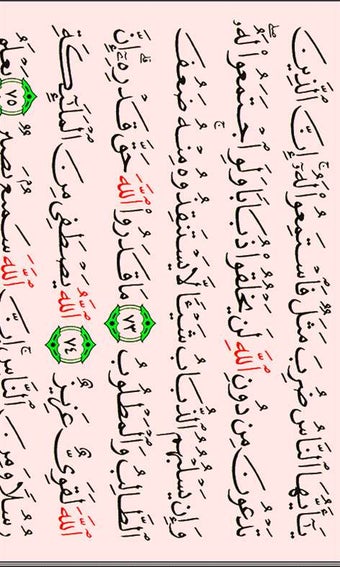 يَٰٓأَيُّهَا ٱلنَّاسُ ضُرِبَ مَثَلٌ فَٱسْتَمِعُوا۟ لَهُۥٓ ۚ إِنَّ ٱلَّذِينَ
تَدْعُونَ مِن دُونِ ٱللَّهِ لَن يَخْلُقُوا۟ ذُبَابًا وَلَوِ ٱجْتَمَعُوا۟ لَهُۥ ۖ
وَإِن يَسْلُبْهُمُ ٱلذُّبَابُ شَيْـًٔا لَّا يَسْتَنقِذُوهُ مِنْهُ ۚ ضَعُفَ
ٱلطَّالِبُ وَٱلْمَطْلُوبُ ٧٣ مَا قَدَرُوا۟ ٱللَّهَ حَقَّ قَدْرِهِۦٓ ۗ إِنَّ
ٱللَّهَ لَقَوِىٌّ عَزِيزٌ ٧٤ ٱللَّهُ يَصْطَفِى مِنَ ٱلْمَلَٰٓئِكَةِ
رُسُلًا وَمِنَ ٱلنَّاسِ ۚ إِنَّ ٱللَّهَ سَمِيعٌۢ بَصِيرٌ ٧٥ يَعْلَمُ